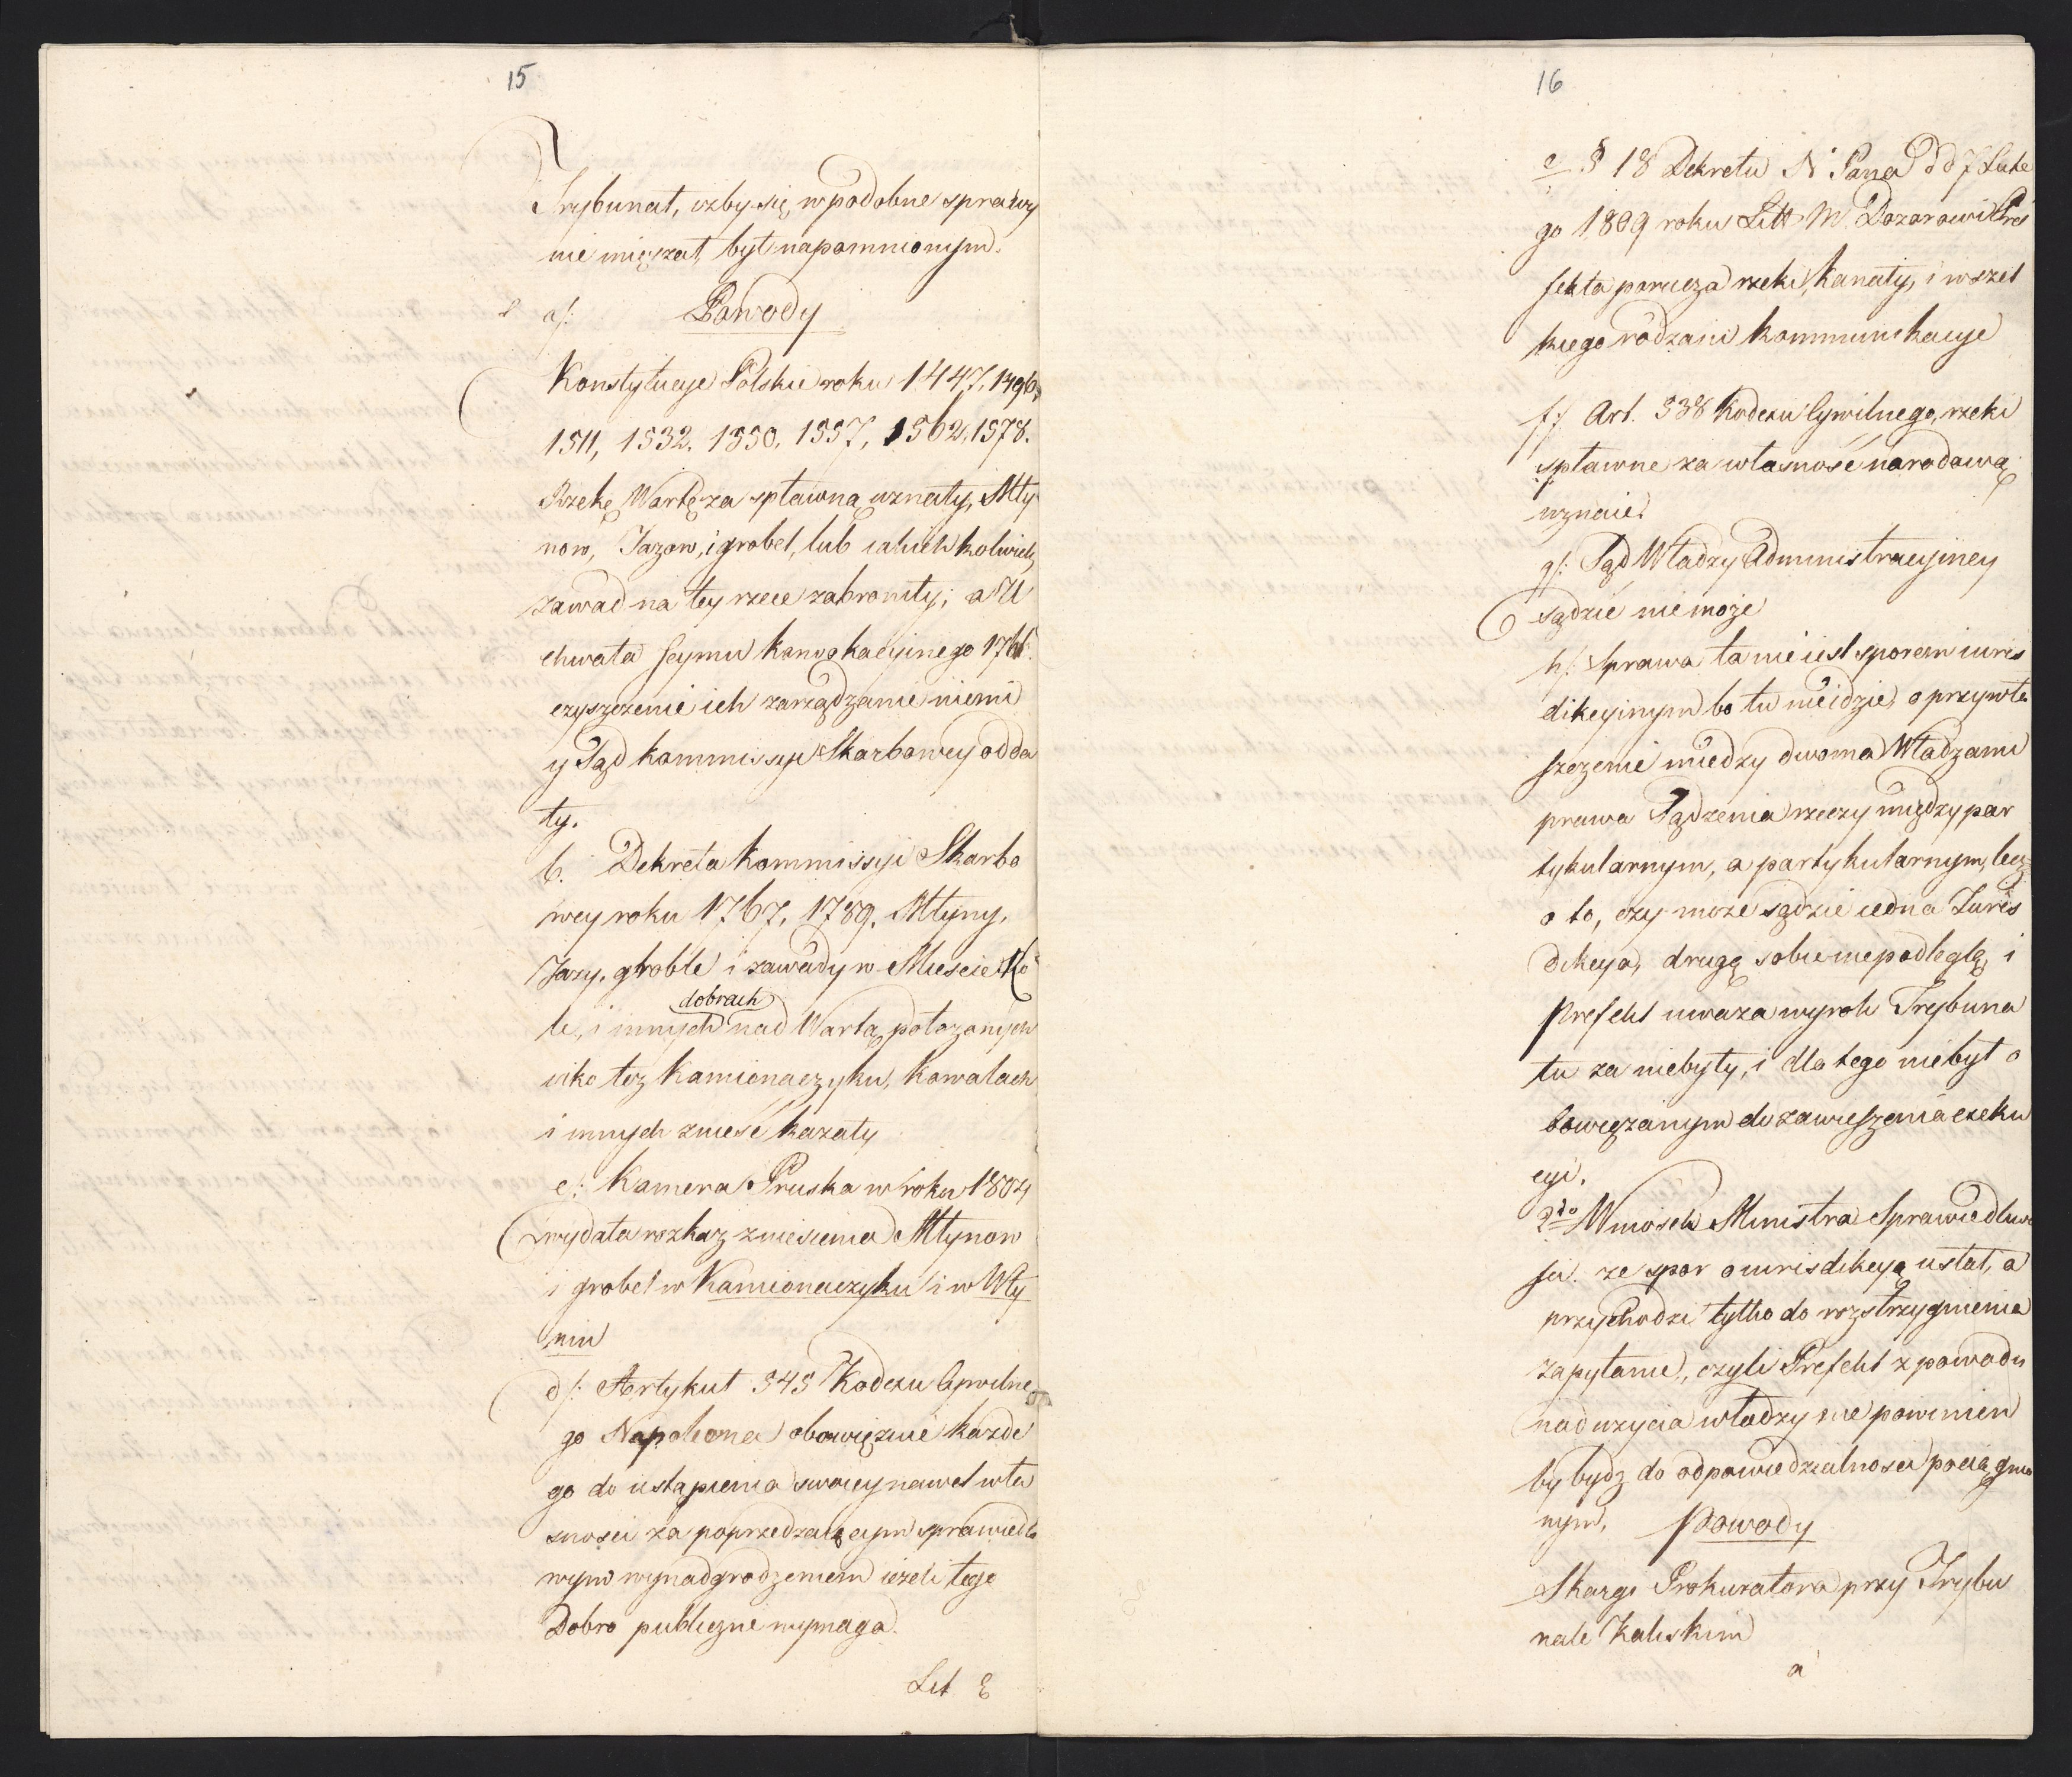 15
Trybunał, izby się w podobne sprawy
nie mięszał, był napomnionym.
a/: Powody
Konstytucye Polskie roku 1447, 1496,
1511, 1532. 1550. 1557, 1562, 1578.
Rzekę Wartę za spławną uznały, Mły
now, Jazow, i grobel, lub iakichkolwiek
zawad na tey rzece zabroniły; a U
chwała Seymu konwokacyinego 1764.
czyszczenie ich zarządzanie niemi
y Sąd kommissyi Skarbowey odda
ły.
b. Dekreta Kommissyi Skarbo
wey roku 1767, 1789. Młyny,
Jazy, groble i zawady w Mieście Ko
le, i innych dobrach nad Wartą położonych
iako też Kamionaczyku, Kowalach
i innych znieść kazały
c: Kamera Pruska w roku 1804
wydała rozkaz zniesienia Młynow
i grobel w Kamionaczyku i w Wły
niu
d/: Artykuł 545 Kodexu Cywilne
go Napoleona obowięzuie każde
go do ustąpienia swoiey nawet wła
sności za poprzedzaiącym sprawiedli
wym wynadgrodzeniem ieżeli tego
Dobro publiczne wymaga.
Lit E
16
e § 18 Dekretu N. Pana d d 7 Lute
go 1809 roku Litt M. Dozorowi Pre
fekta porucza rzeki, kanały, i wszel
kiego rodzaiu kommunikacye
f/: Art. 538 Kodexu Cywilnego, rzeki
spławne za własność narodową
uznaie.
g/: Sąd Władzy Administracyiney
sądzić nie może
h/: Sprawa ta nie iest sporem iuris
dikcyinym bo tu nie idzie o przywła
szczenie między dwoma Władzami
prawa Sądzenia rzeczy między par
tykularnym, a partykularnym, lecz
o to, czy może sądzić iedna Juris
dikcya, drugą sobie niepodległą, i
Prefekt uważa wyrok Trybuna
łu za niebyły, i dla tego nie był o
bowięzanym do zawieszenia exeku
cyi.
2do Wniosek Ministra Sprawiedliwo
ści. że spor o iurisdikcyą ustał, a
przychodzi tylko do rozstrzygnienia
zapytanie, czyli Prefekt z powodu
nadużycia władzy nie powinien
by bydz do odpowiedzialności pociągnio
nym. Powody
Skargi Prokuratora przy Trybu
nale Kaliskim
a